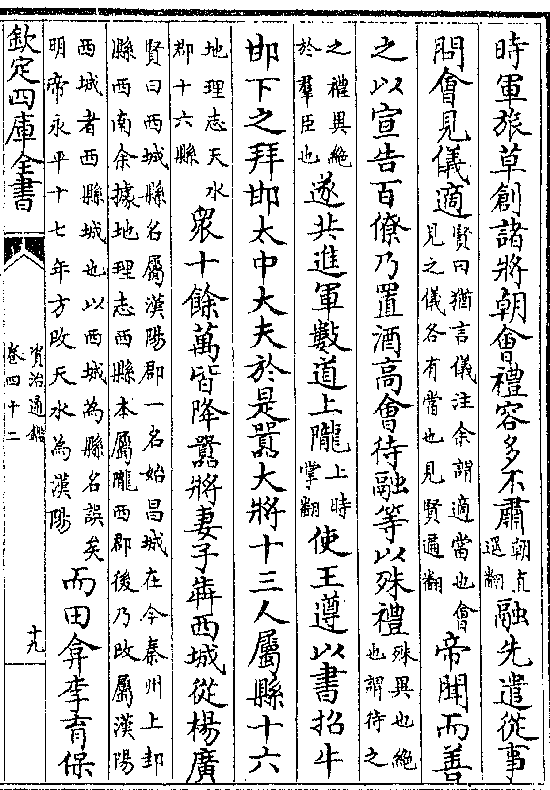 時軍旅草創諸將朝會禮容多不肅朝直遥翻融先遣從事
問會見儀適賢曰猶言儀注余謂適當也會見之儀各有當也見賢遍翻帝聞而善
之以宣告百僚乃置酒高會待融等以殊禮殊異也絶也謂待之
之禮異絶於羣臣也遂共進軍數道上隴上時掌翻使王遵以書招牛
邯下之拜邯太中大夫於是囂大將十三人屬縣十六
地理志天水郡十六縣衆十餘萬皆降囂將妻子犇西城從楊廣
賢曰西城縣名屬漢陽郡一名始昌城在今秦州上邽縣西南余據地理志西縣本屬隴西郡後乃改屬漢陽
西城者西縣城也以西城為縣名誤矣明帝永平十七年方改天水為漢陽而田弇李育保
欽定四庫全書
資治通鑑
卷四十二
十九